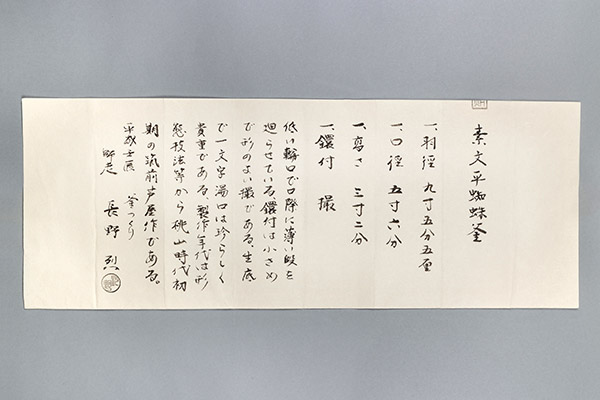 素文平蜘蛛釜
一、羽径 九寸五分五厘
一、口径 五寸六分
一、高さ 三寸二分
一、鐶付 撮
低い輪口で口際に薄い段を
廻らせている。鐶付は小さめ
で形のよい撮である。生底
で一文字湯口は珍らしく
貴重である。製作年代は形
態技法等から桃山時代初
期の筑前芦屋作である。
平成壬辰
釜つくり
長野 烈